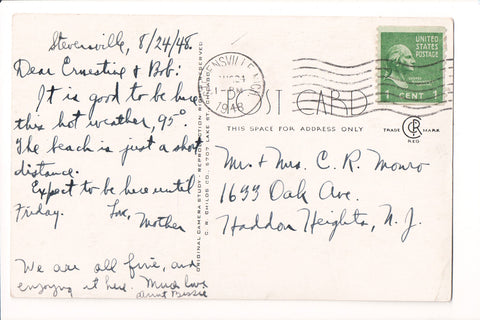 Stevensville, 8/24/48.
Dear Ernestine & Bob:
It is good to be here
this hot weather, 95°.
The beach is just a short
distance.
Expect to be here until
Friday. Love,
Mother
We are all fine, and
enjoying it here. Much love
Aunt Bessie
ORIGINAL CAMERA STUDY - REPRODUCTION RIGHTS RESERVED
C. R. CHILDS CO. 5707 LAKE ST. CHICAGO
STEVENSVILLE, MICH.
AUG 24
1 PM
1948
UNITED
STATES
POSTAGE
1 CENT 1
POST CARD
THIS SPACE FOR ADDRESS ONLY
TRADE CR MARK
REG
Mr. & Mrs. C. R. Monro
1633 Oak Ave.
Haddon Heights, N. J.